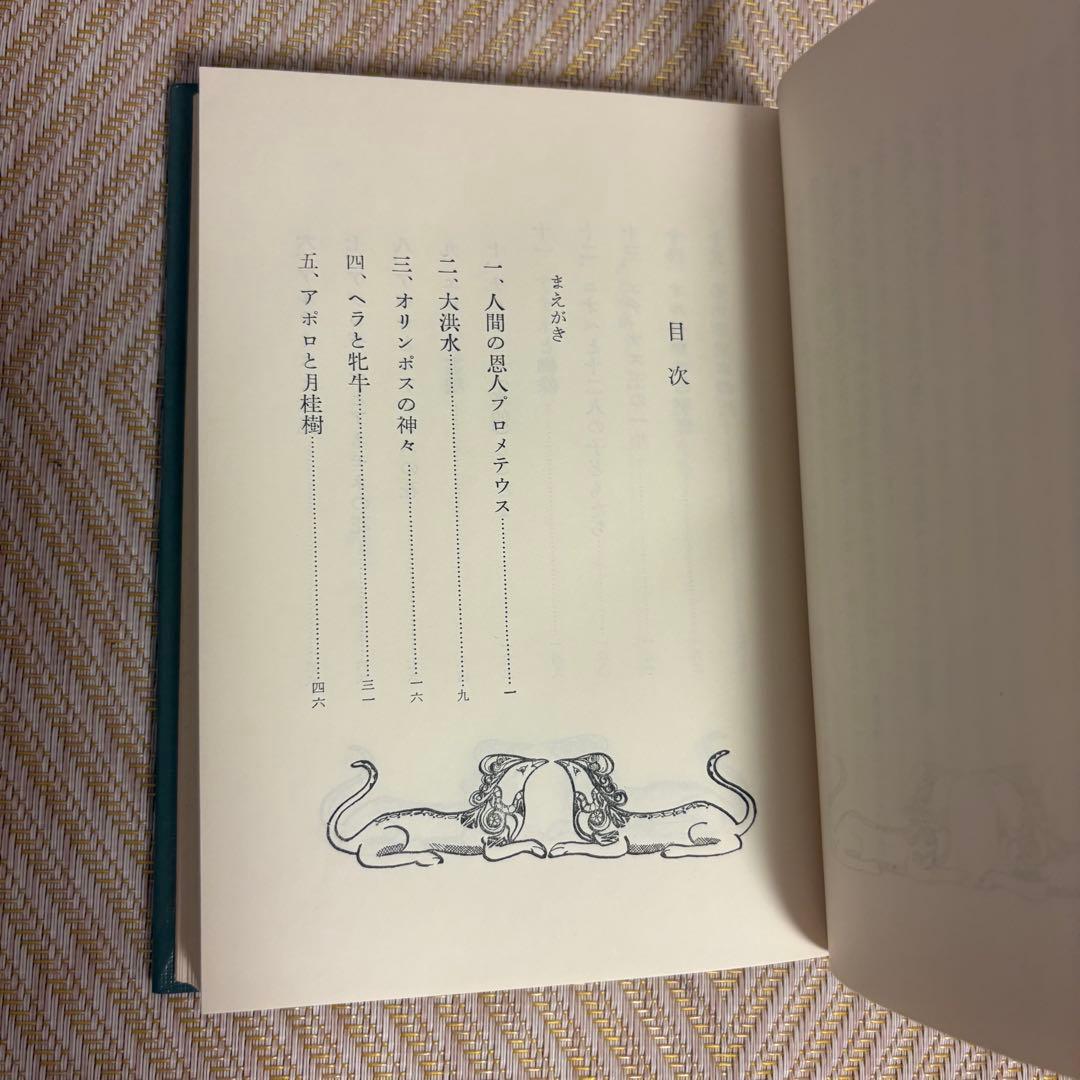 目次
まえがき
一、人間の恩人プロメテウス……………………一
二、大洪水……………………………………九
三、オリンポスの神々…………………………一六
四、ヘラと牝牛………………………………三一
五、アポロと月桂樹……………………………四六